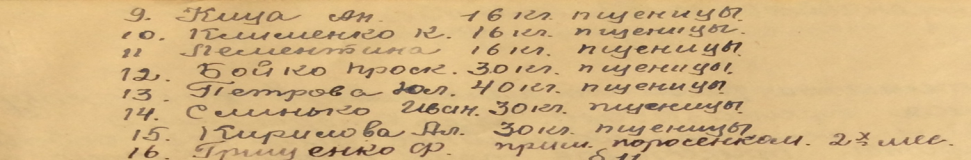 9. Кица Ан. 16 кг. пшеницы.
10. Клименко К. 16 кг. пшеницы.
11 Лементина 16 кг. пшеницы.
12. Бойко Проск. 30 кг. пшеницы.
13. Петрова Юл. 40 кг. пшеницы
14. Слинько Иван. 30 кг. пшеницы
15. Кирилова Ал. 30 кг. пшеницы
16. Грищенко Ф. прим. поросенком. 2х мес.